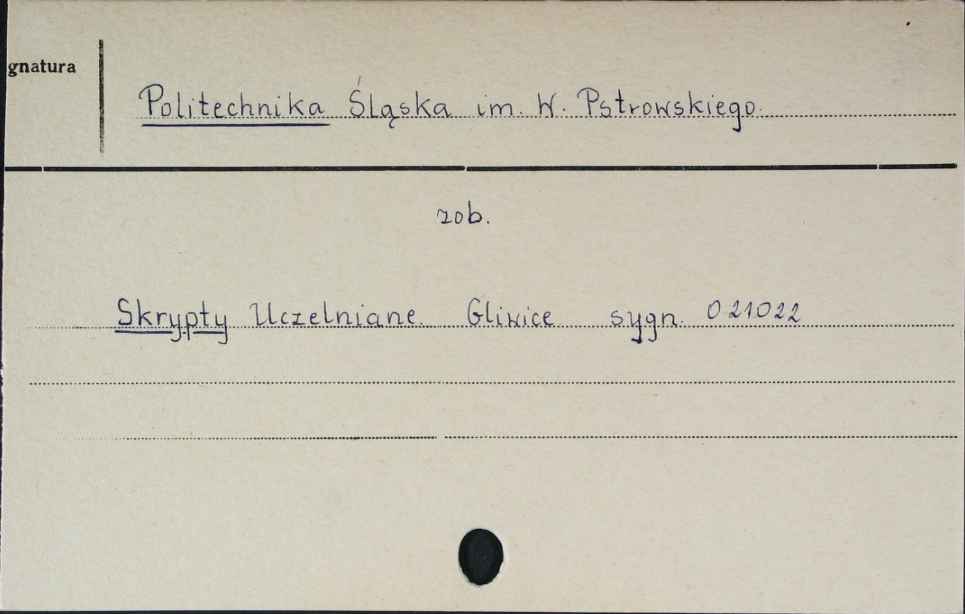 gnatura
Politechnika Śląska im. W. Pstrowskiego.
zob.
Skrypty Uczelniane. Gliwice sygn. 021022